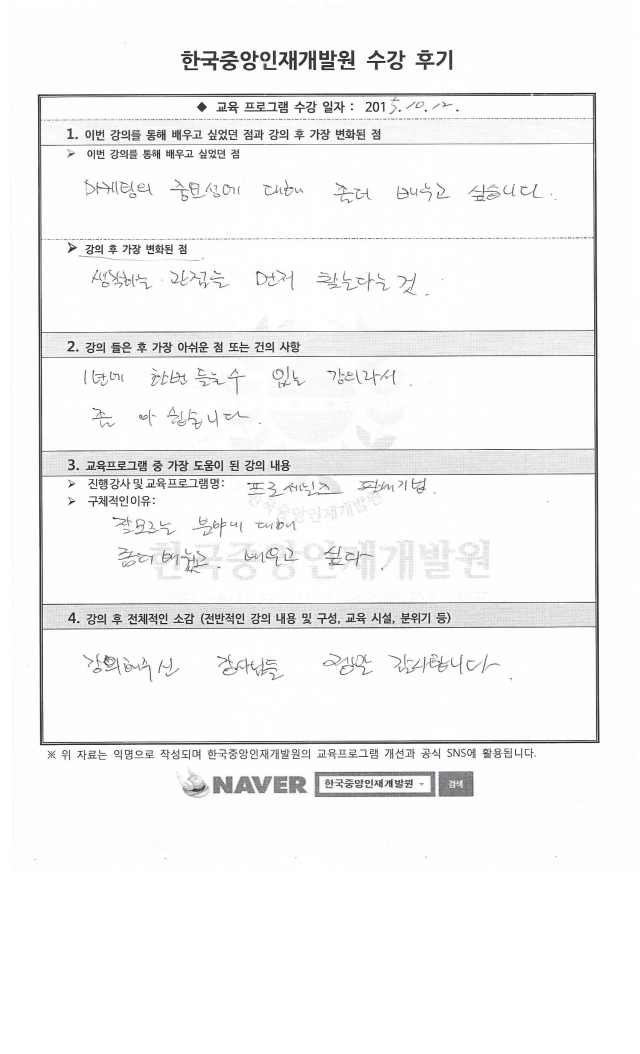 한국중앙인재개발원 수강 후기
◆ 교육 프로그램 수강 일자 : 2015.10.12.
1. 이번 강의를 통해 배우고 싶었던 점과 강의 후 가장 변화된 점
➢ 이번 강의를 통해 배우고 싶었던 점
마케팅의 중요성에 대해 좀더 배우고 싶습니다.
➢ 강의 후 가장 변화된 점
생각하는 관점을 먼저
2. 강의 들은 후 가장 아쉬운 점 또는 건의 사항
1년에 한번 들을수 있는 강의라서
좀 아쉽습니다.
3. 교육프로그램 중 가장 도움이 된 강의 내용
➢ 진행강사 및 교육프로그램명: 프로세일즈 판매기법.
➢ 구체적인이유:
잘모르는 분야에 대해
좀더 배우고 싶다.
한국중앙인재개발원
한국중앙인재개발원
4. 강의 후 전체적인 소감 (전반적인 강의 내용 및 구성, 교육 시설, 분위기 등)
강의해주신 강사님들 정말 감사합니다.
※ 위 자료는 익명으로 작성되며 한국중앙인재개발원의 교육프로그램 개선과 공식 SNS에 활용됩니다.
NAVER 한국중앙인재개발원 검색